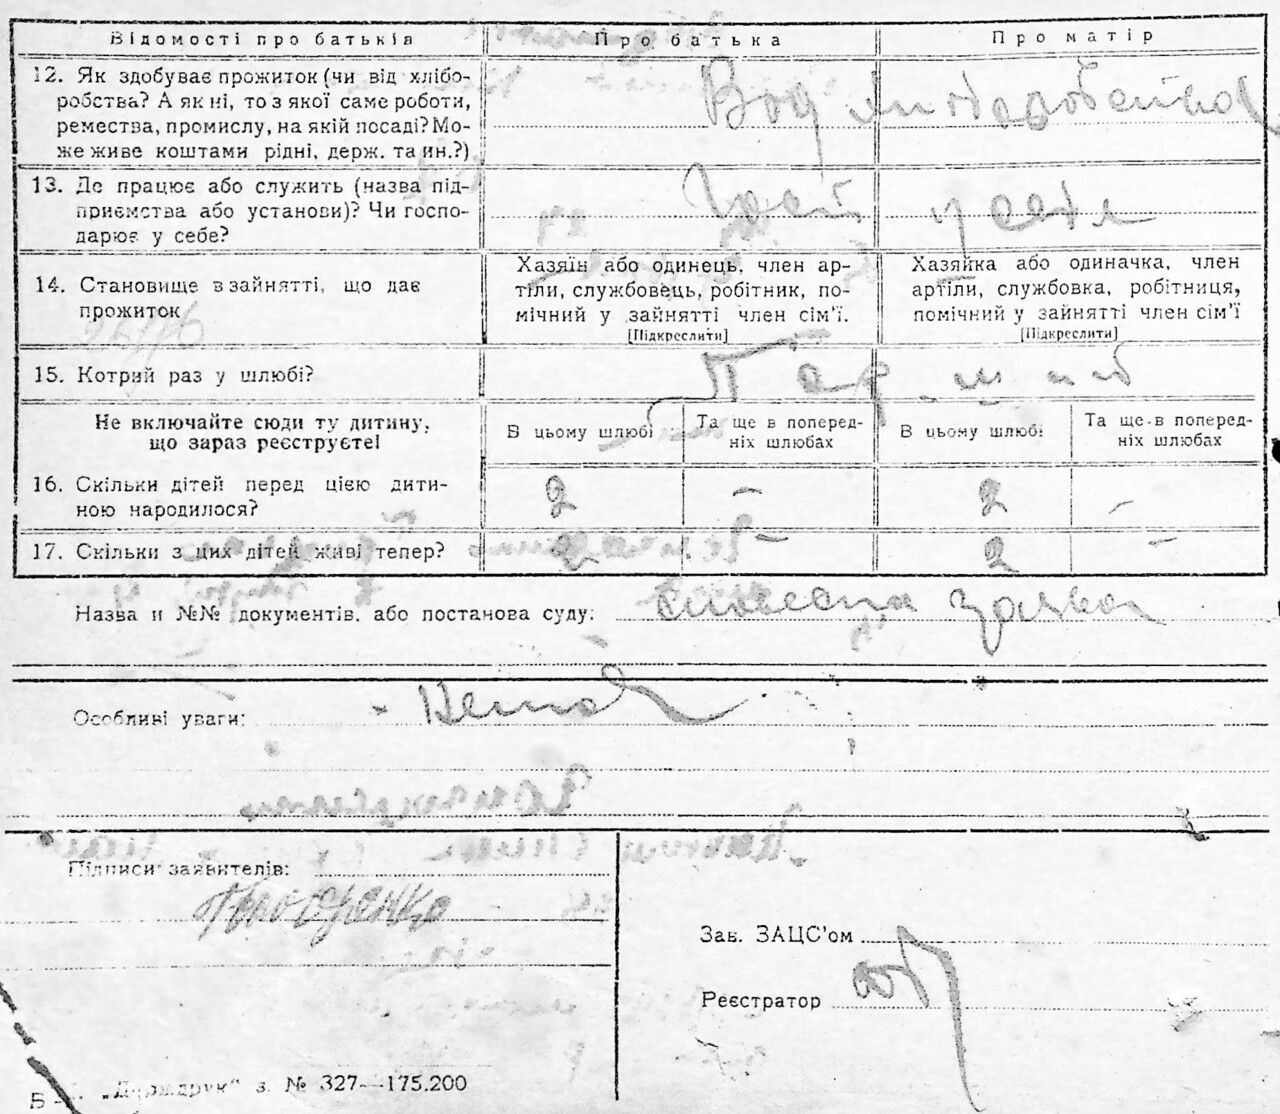 Відомості про батьків Про батька Про матір
12. Як здобуває прожиток (чи від хлібо-
робства? А як ні, то з якої саме роботи,
ремества, промислу, на якій посаді? Мо-
же живе коштами рідні, держ. та ин.?)
Вод хліборобства
13. Де працює або служить (назва під-
приємства або установи)? Чи госпо-
дарює у себе?
Госп у себе
14. Становище в зайнятті, що дає
прожиток
Хазяїн або одинець, член ар-
тіли, службовець, робітник, по-
мічний у зайнятті член сім'ї.
[Підкреслити]
Хазяйка або одиначка, член
артіли, службовка, робітниця,
помічний у зайнятті член сім'ї
[Підкреслити]
15. Котрий раз у шлюбі?
Перший
Не включайте сюди ту дитину,
що зараз реєструєте!
В цьому шлюбі
Та ще в поперед-
ніх шлюбах
В цьому шлюбі
Та ще в поперед-
ніх шлюбах
16. Скільки дітей перед цією дити-
ною народилося?
2 – 2 –
17. Скільки з цих дітей живі тепер? 2 – 2 –
Назва и №№ документів. або постанова суду: словесна заява
Особливі уваги: Нема
Підписи заявителів:
Зав. ЗАЦС'ом
Реєстратор
"Держдрук" з. № 327—175.200